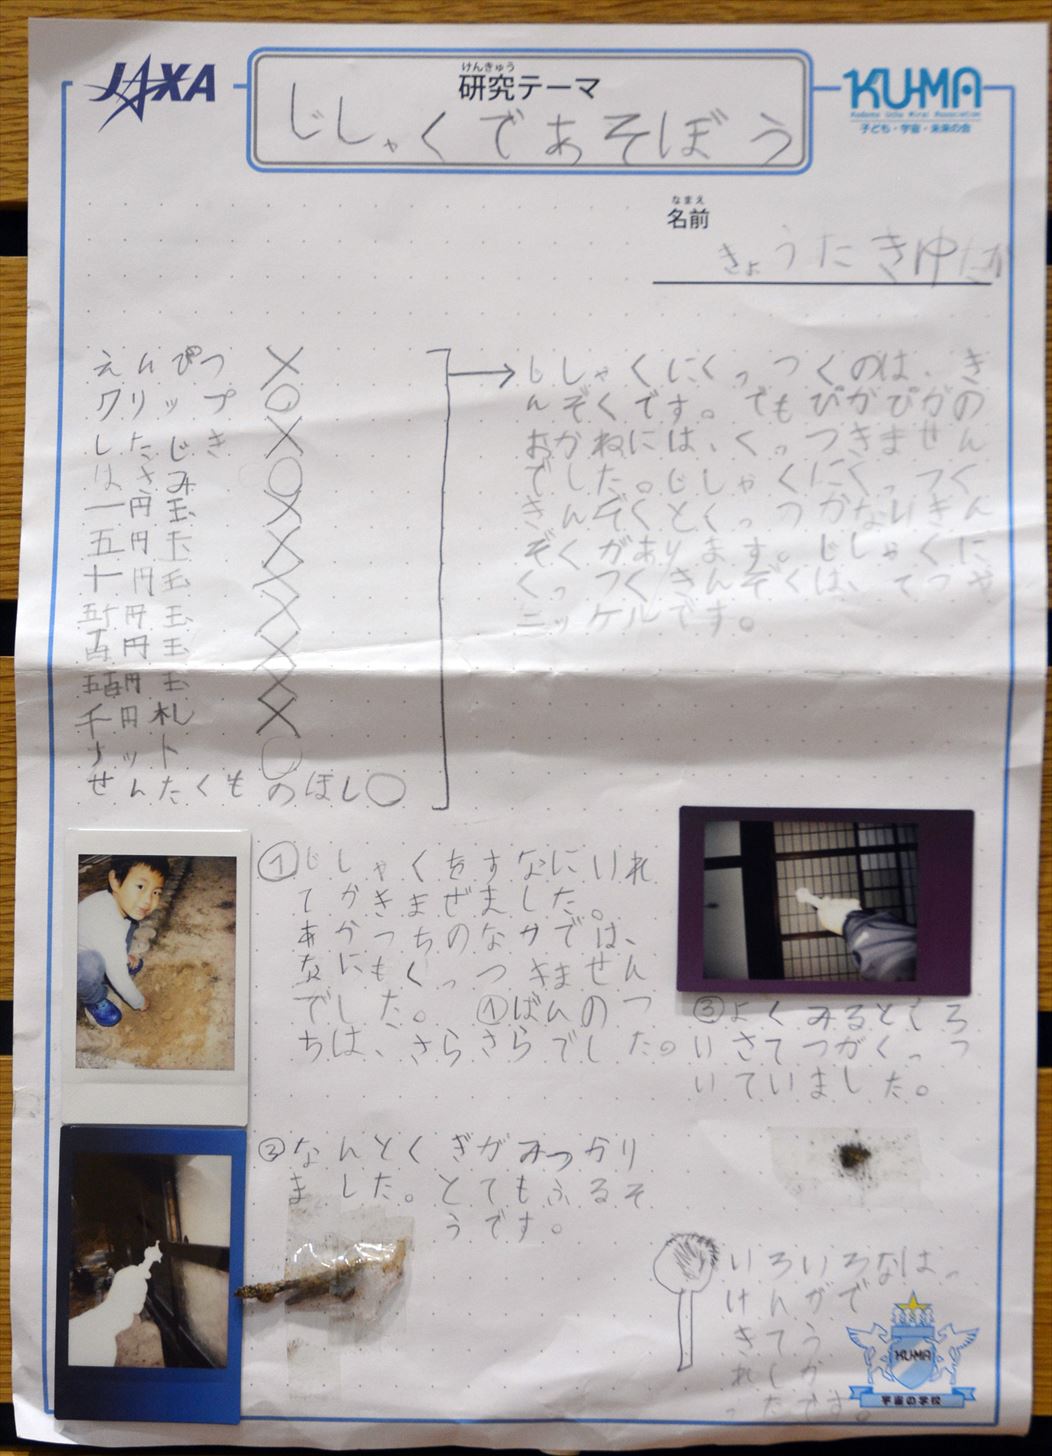 JAXA
けんきゅう
研究テーマ
じしゃくであそぼう
KU-MA
Kodomo Uchu Mirai Association
子ども・宇宙・未来の会
なまえ
名前
えんぴつ ×
クリップ ○
したじき ×
はさみ ○
一円玉 ×
五円玉 ×
十円玉 ×
五十円玉 ×
百円玉 ×
五百円玉 ×
千円札 ×
ナット ○
せんたくものほし○
じしゃくにくっつくのは、き
んぞくです。でもぴかぴかの
おかねには、くっつきません
でした。じしゃくにくっつく
きんぞくとくっつかないきん
ぞくがあります。じしゃくに
くっつくきんぞくは、てつや
ニッケルです。
①じしゃくをすなにいれ
てかきまぜました。
あかつちのなかでは、
なにもくっつきません
でした。①ばんのつ
ちは、さらさらでした。
③なんとくぎがみつかり
ました。とてもふるそ
うです。
③よくみるとしろ
いさてつがくっつ
いていました。
いろいろなはっ
けんがで
きてう
れしか
ったです。
KU-MA
宇宙の学校